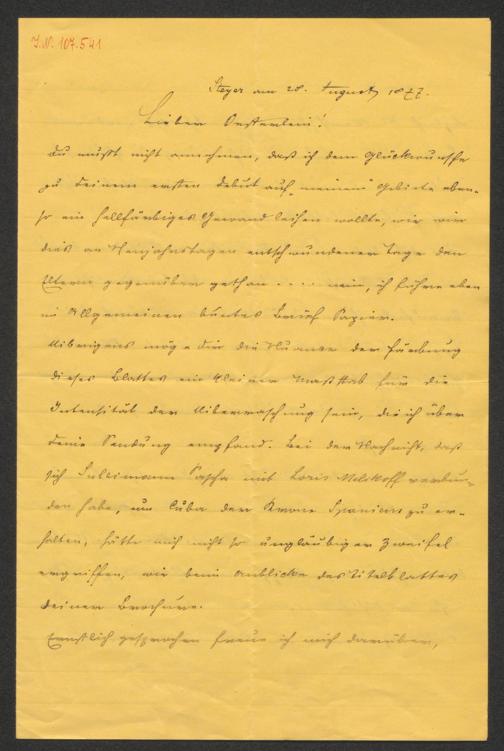 I.N. 107.541
Steyer am 28. August 1877.
Lieber Oesterlein!
Du mußt nicht annehmen, daß ich dem Glückwunsche
zu Deinem ersten Debut auf „meinem“ Gebiete eben-
so ein hellfärbiges Gewand leihen wollte, wie wir
dies an Neujahrstagen entschwundener Tage den
Eltern gegenüber gethan .... nein, ich führe eben
im Allgemeinen buntes Brief Papier.
Uibrigens möge Dir die Nuance der Färbung
dieses Blattes ein kleiner Maßstab für die
Intensität der Uiberraschung sein, die ich über
Deine Sendung empfand. Bei der Nachricht, daß
sich Suleimann Pascha mit Loris Melikoff verbun-
den habe, um Cuba der Krone Spaniens zu er-
halten, hätte mich nicht so ungläubiger Zweifel
ergriffen, wie beim Anblicke des Titelblattes
Deiner Brochure.
Ernstlich gesprochen freue ich mich darüber,